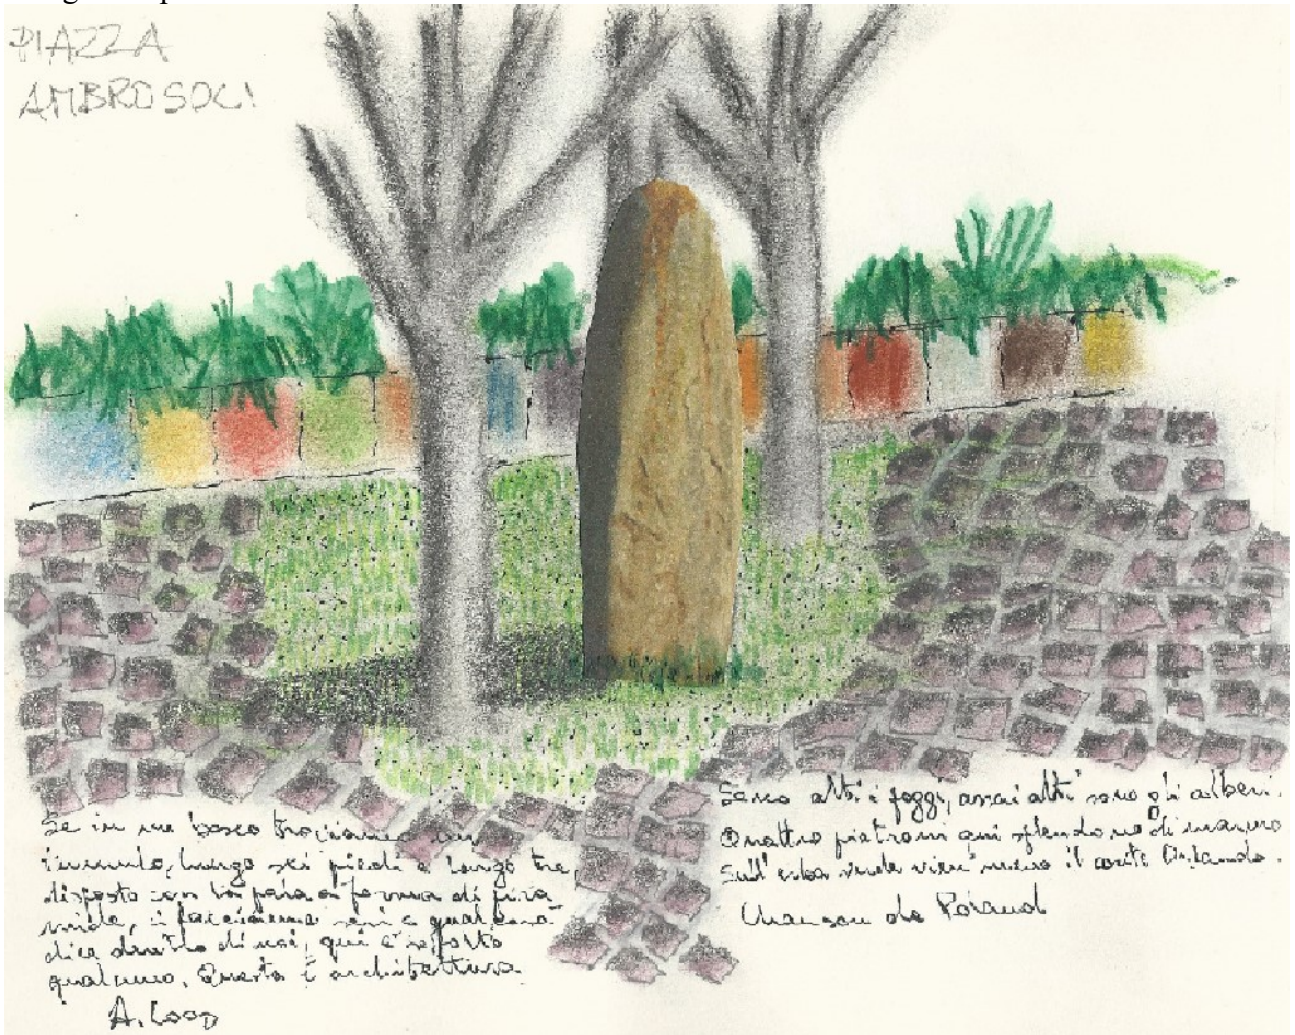 PIAZZA
AMBROSOLI
Se in un bosco troviamo un
tumulo, lungo sei piedi e largo tre,
disposto con la pala a forma di pira
mide, ci facciamo seri e qualcosa
dice dentro di noi, qui è sepolto
qualcuno. Questa è architettura
A. Loos
Sono alti i poggi, assai alti sono gli alberi.
Quattro pietroni qui splendono di marmo
Sull'erba verde vien meno il conte Orlando.
Chanson de Roland